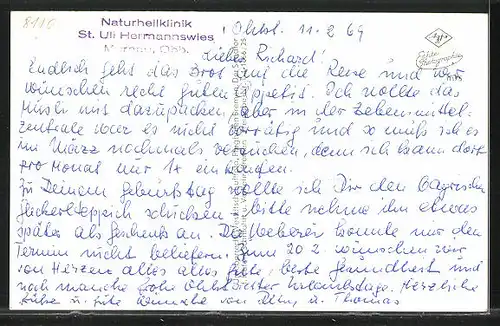 8110
Naturheilklinik
St. Uli Hermannswies
Murnau, Obb.
Ohlst. 11.2.69
Lieber Richard!
Endlich geht das Brot auf die Reise und wir
wünschen recht guten Appetit. Ich wollte das
Müsli mit dazupacken, aber in der Lebensmittel-
zentrale war es nicht vorrätig und so muß ich es
im März nochmals versuchen, denn ich kann dort
pro Monat nur 1x einkaufen.
Zu Deinem Geburtstag wollte ich Dir den bayrischen
Fleckerlteppich schicken - bitte nehme ihn etwas
später als Geschenk an. Die Weberei konnte nur den
Termin nicht beliefern. Zum 20.2. wünschen wir
von Herzen alles alles Gute, beste Gesundheit und
noch manche frohe Urlaubstage. Herzliche
Grüße u. gute Wünsche von u. Thomas
Agfa
Echte
Photographie